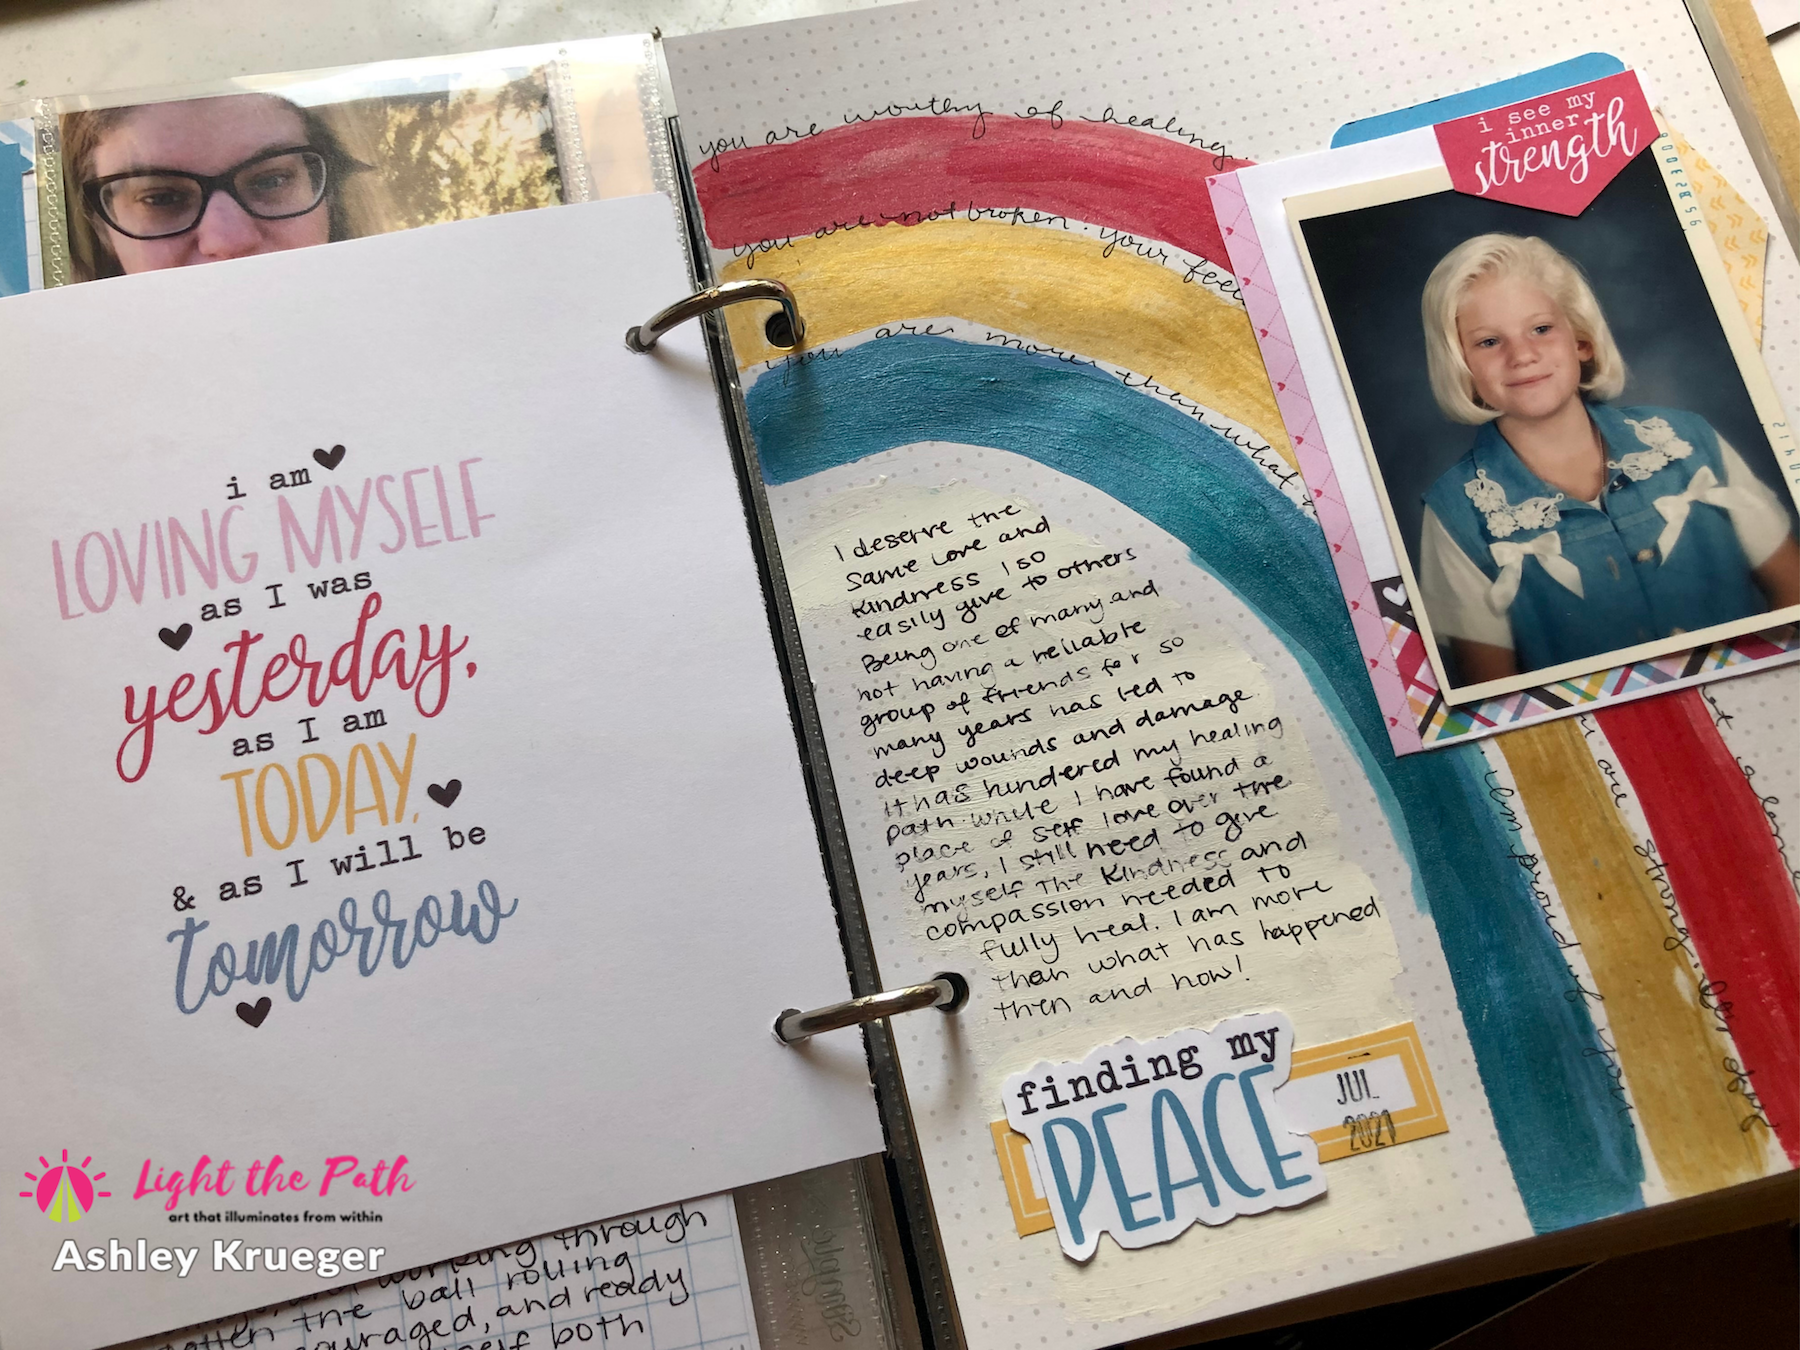 i am
LOVING MYSELF
as I was
yesterday,
as I am
TODAY,
& as I will be
tomorrow
Light the Path
art that illuminates from within
Ashley Krueger
working through
the ball rolling
couraged, and ready
self both
you are worthy of healing.
you are not broken. your feel
you are more than what
i see my
inner
strength
I deserve the
same love and
kindness I so
easily give to others
Being one of many and
not having a reliable
group of friends for so
many years has led to
deep wounds and damage.
It has hindered my healing
path. while I have found a
place of self love over the
years, I still need to give
myself the kindness and
compassion needed to
fully heal. I am more
than what has happened
then and now!
finding my
PEACE
JUL
2021
i'm proud of you.
are strong.